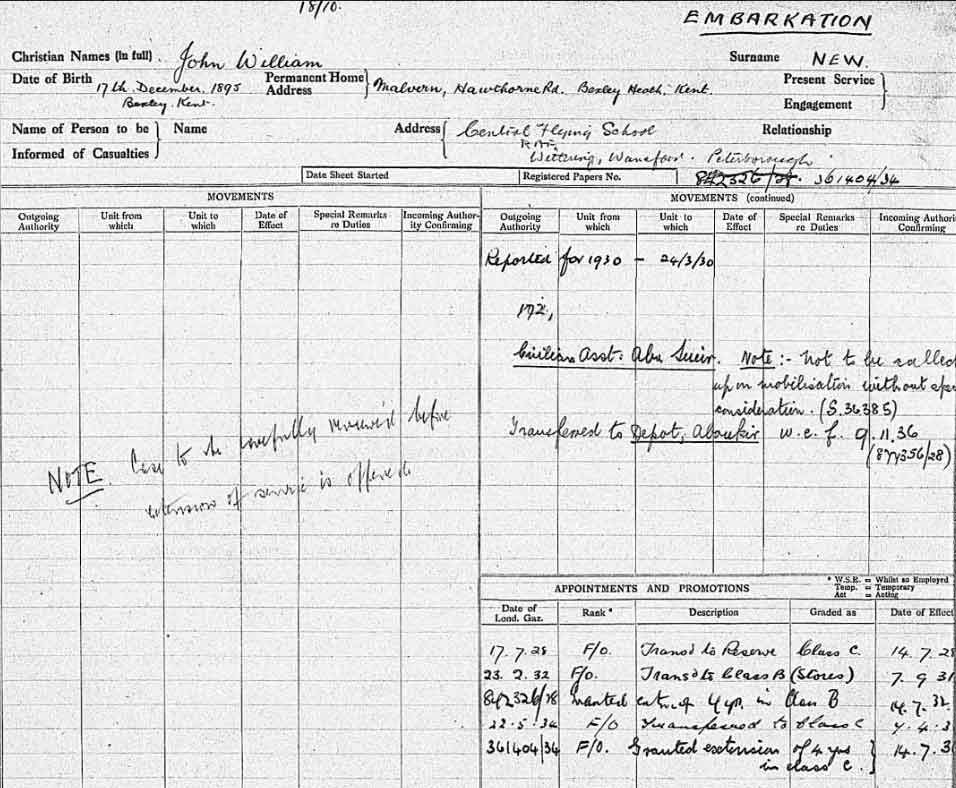 18/10.
EMBARKATION
Christian Names (in full) John William Surname NEW.
Date of Birth 17th. December. 1895 Permanent Home Address Malvern, Hawthorne Rd. Bexley Heath, Kent. Present Service
Bexley. Kent. Engagement
Name of Person to be Informed of Casualties Name Address Central Flying School Relationship
Wittering, Wansford. Peterborough.
Date Sheet Started Registered Papers No. 842326/28. 361404/34
MOVEMENTS
Outgoing Authority Unit from which Unit to which Date of Effect Special Remarks re Duties Incoming Author-ity Confirming
NOTE. Case to be carefully reviewed before
extension of service is offered
MOVEMENTS (continued)
Outgoing Authority Unit from which Unit to which Date of Effect Special Remarks re Duties Incoming Authori Confirming
Reported for 1930 - 24/3/30
Civilian Asst: Abu Sueir. Note:- Not to be called
up on mobilisation without spe
consideration. (S.36385)
Transferred to Depot, Aboukir w.e.f. 9.11.36
APPOINTMENTS AND PROMOTIONS
* W.S.E. = Whilst so Employed
Temp. = Temporary
Act = Acting
Date of Lond. Gaz. Rank * Description Graded as Date of Effect
17.7.28 F/O. Transd to Reserve Class C. 14.7.28
23.2.32 F/O. Transd to Class B (Stores) 7.9.31
842326/28 Granted extn. of 4 yrs. in Class B 14.7.32.
22.5.34 F/O Transferred to Class C 4.4.3
361404/34 F/O. Granted extension of 4 yrs 14.7.3
in class C.